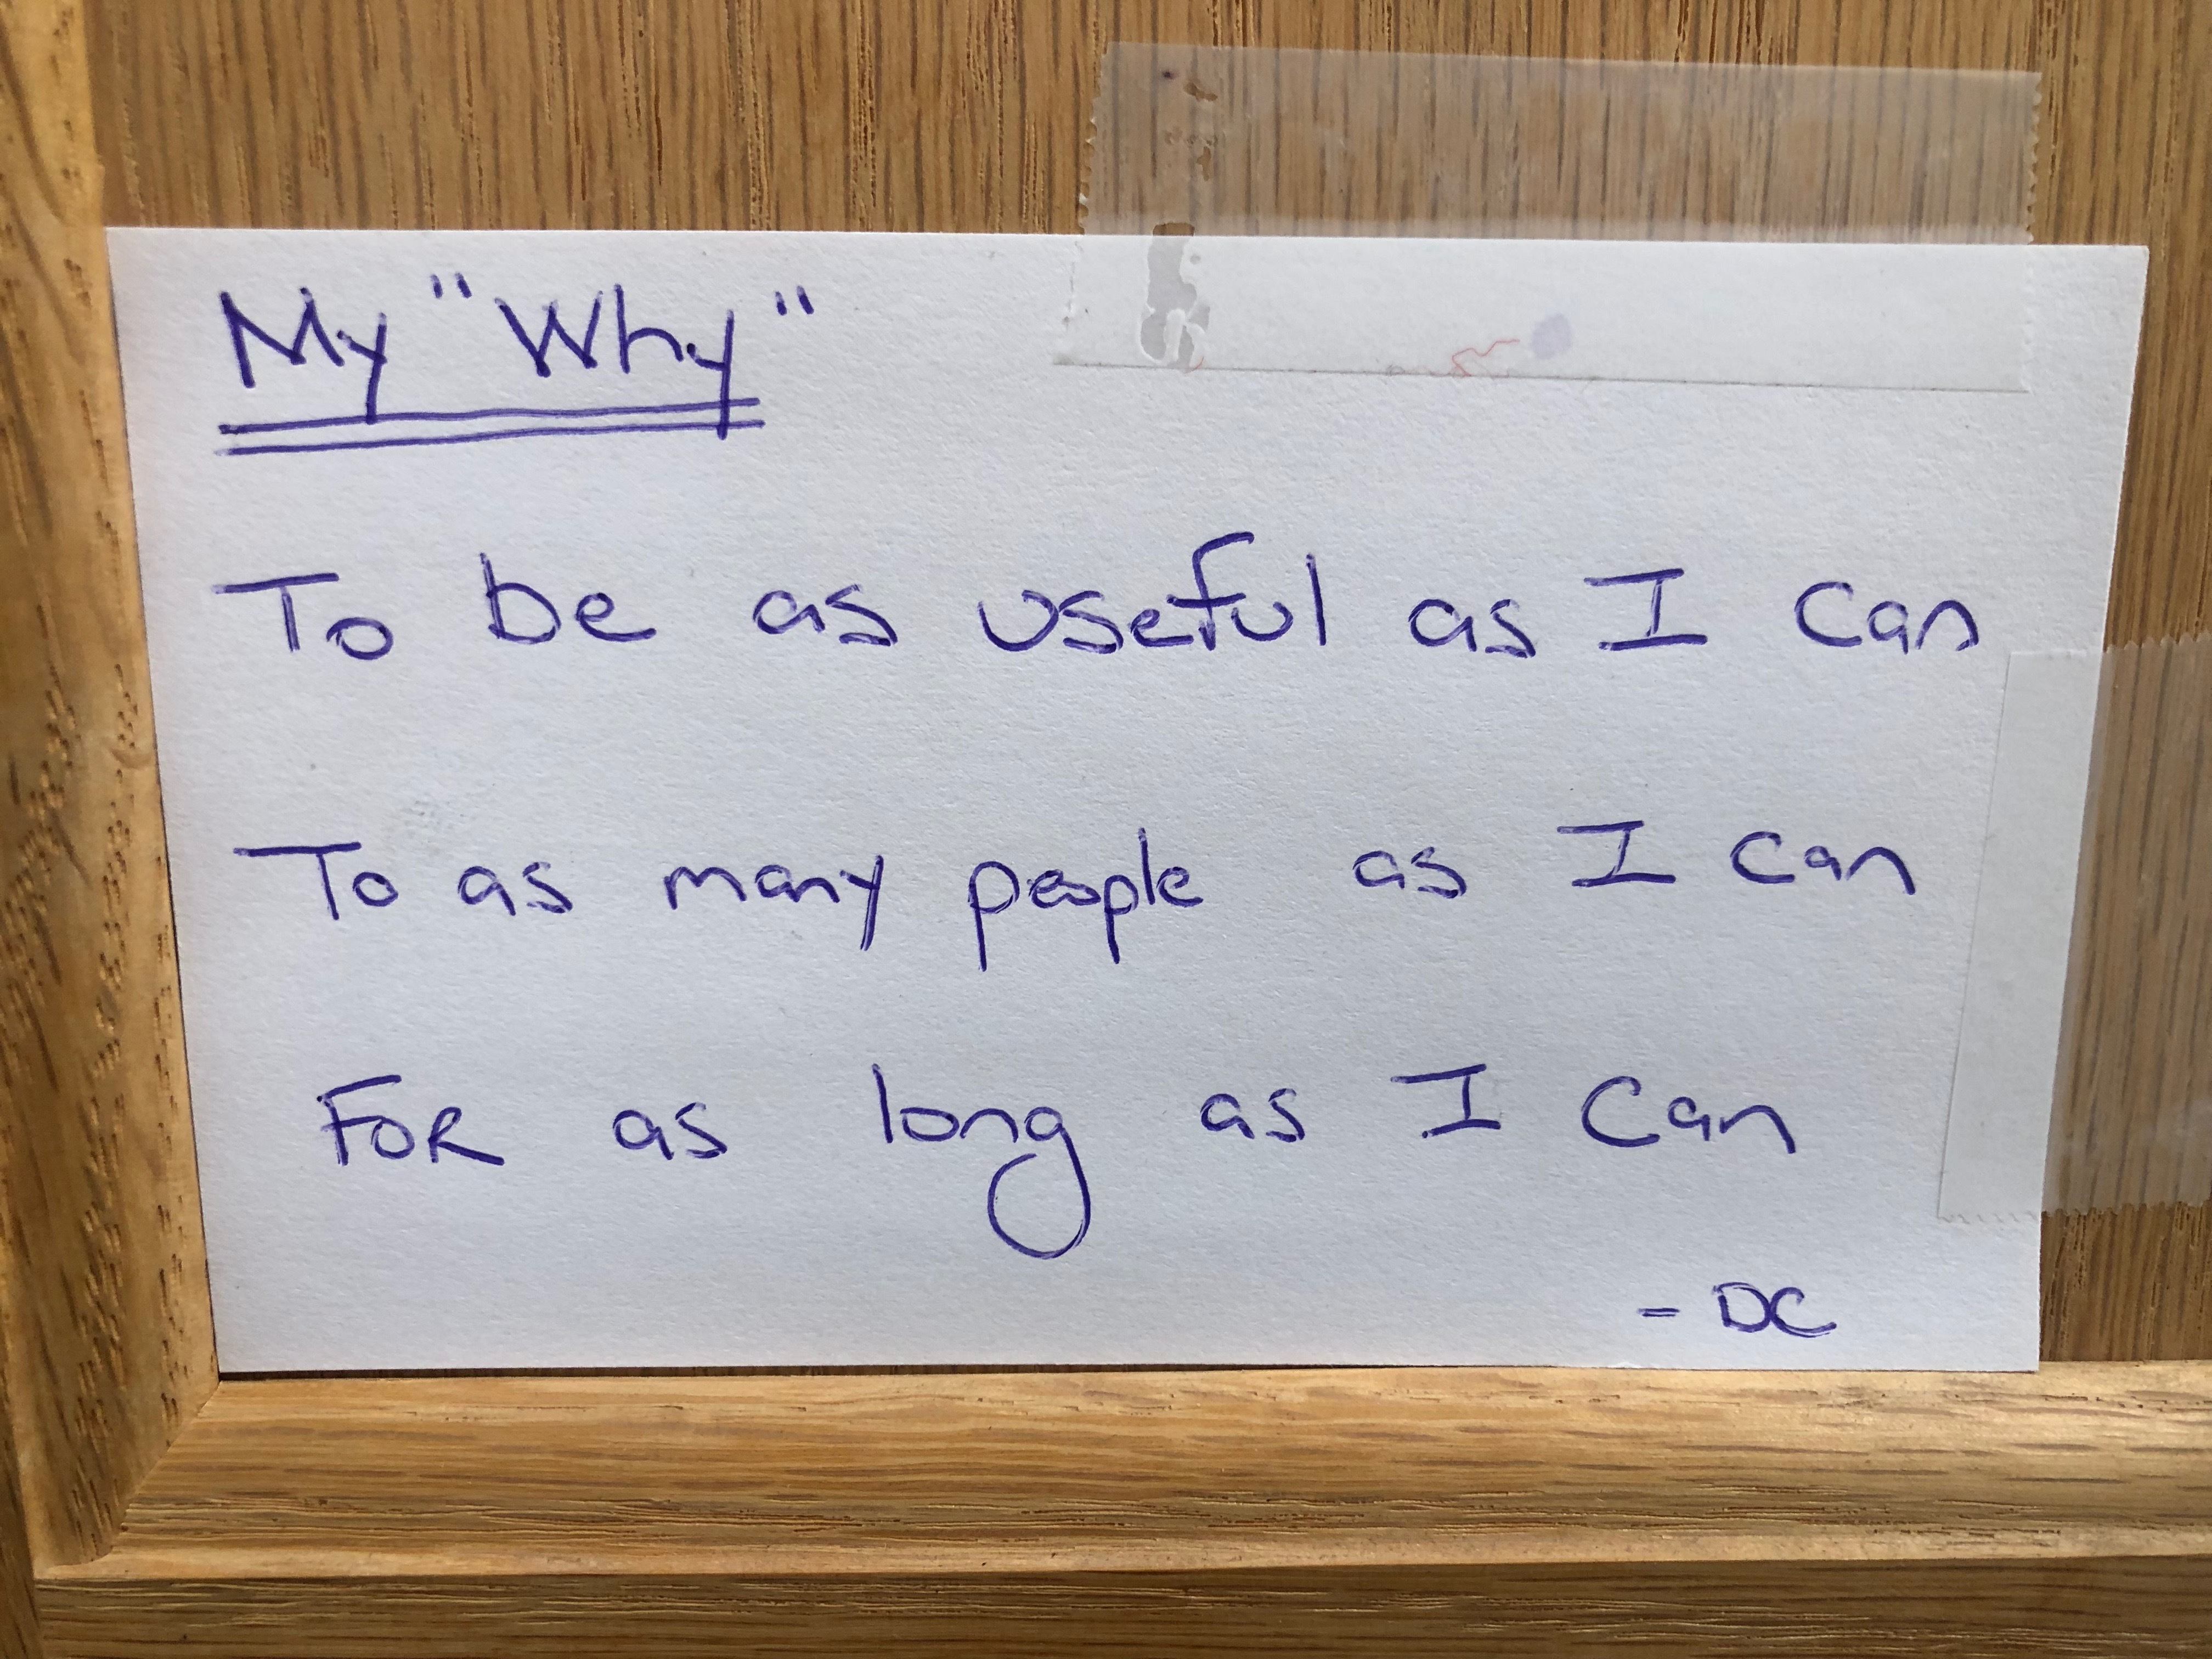 My "Why"
To be as useful as I can
To as many people as I can
FOR as long as I can
- DC